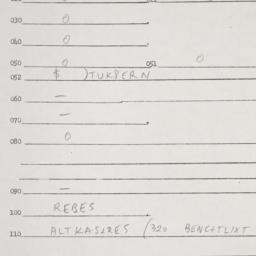 030 0
040 0
050 0 051 0
052 $ )TUKPERN
060 —
070 —
080 0
090 —
100 REBES
110 ALTKASTRES (320 BENCHTLIXT